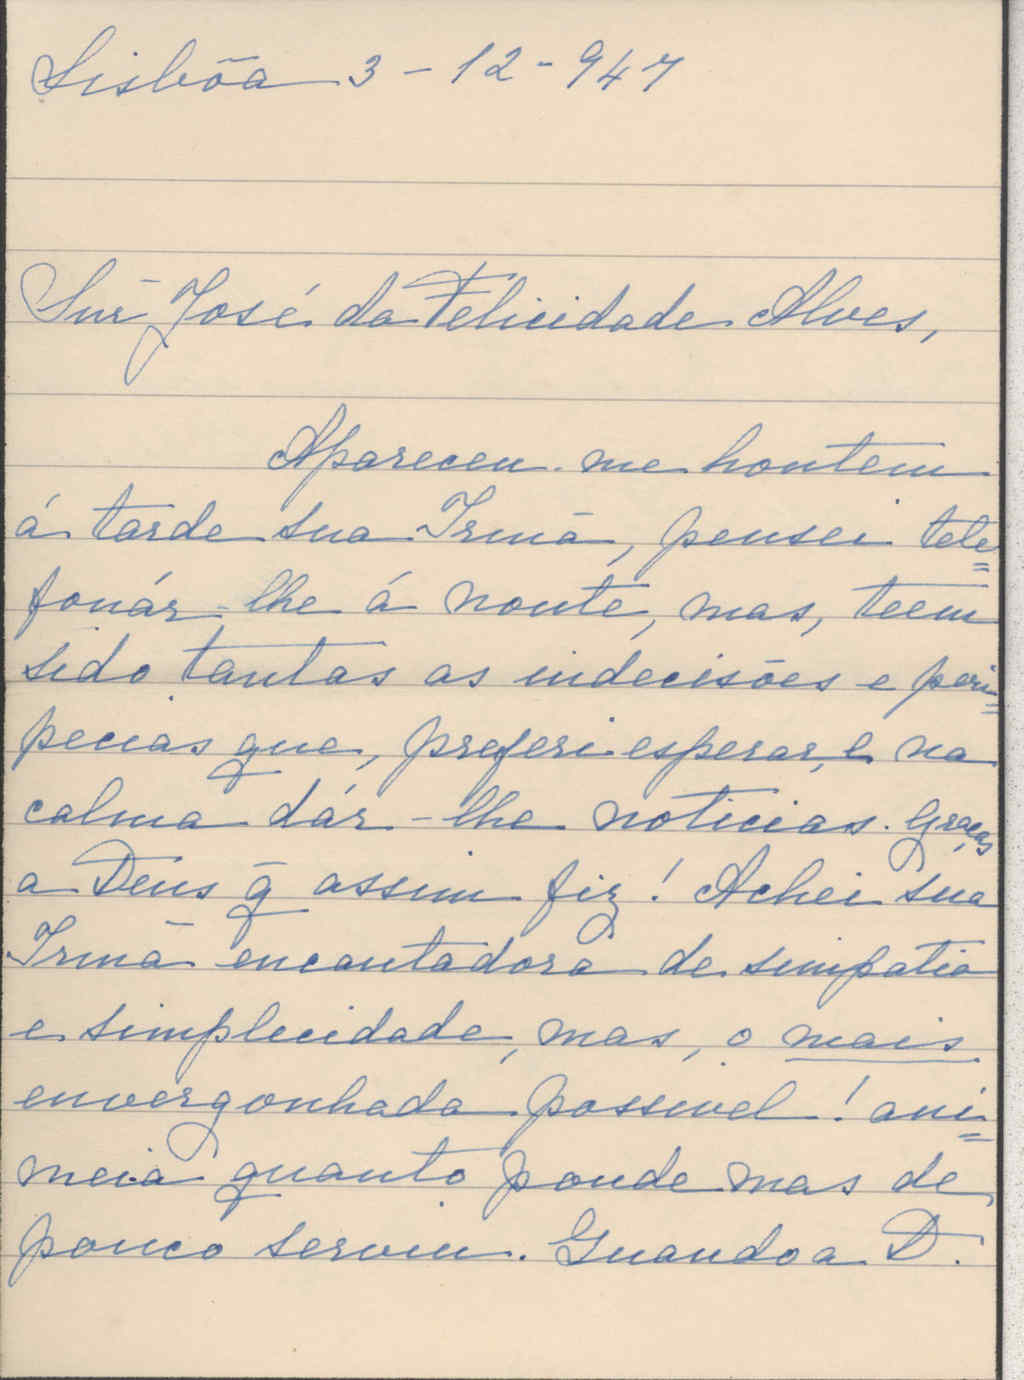 Lisbôa 3-12-947
Snr José da Felicidade Alves,
Apareceu-me hontem
á tarde sua Irmã, pensei tele=
fonár-lhe á noute, mas, teem
sido tantas as indecisões e peri=
pecias que, preferi esperar, e na
calma dár-lhe noticias. Graças
a Deus q̃ assim fiz! Achei sua
Irmã encantadora de simpatia
e simplicidade, mas, o mais
envergonhada possivel! ani=
meia quanto poude mas de
pouco serviu. Quando a D.